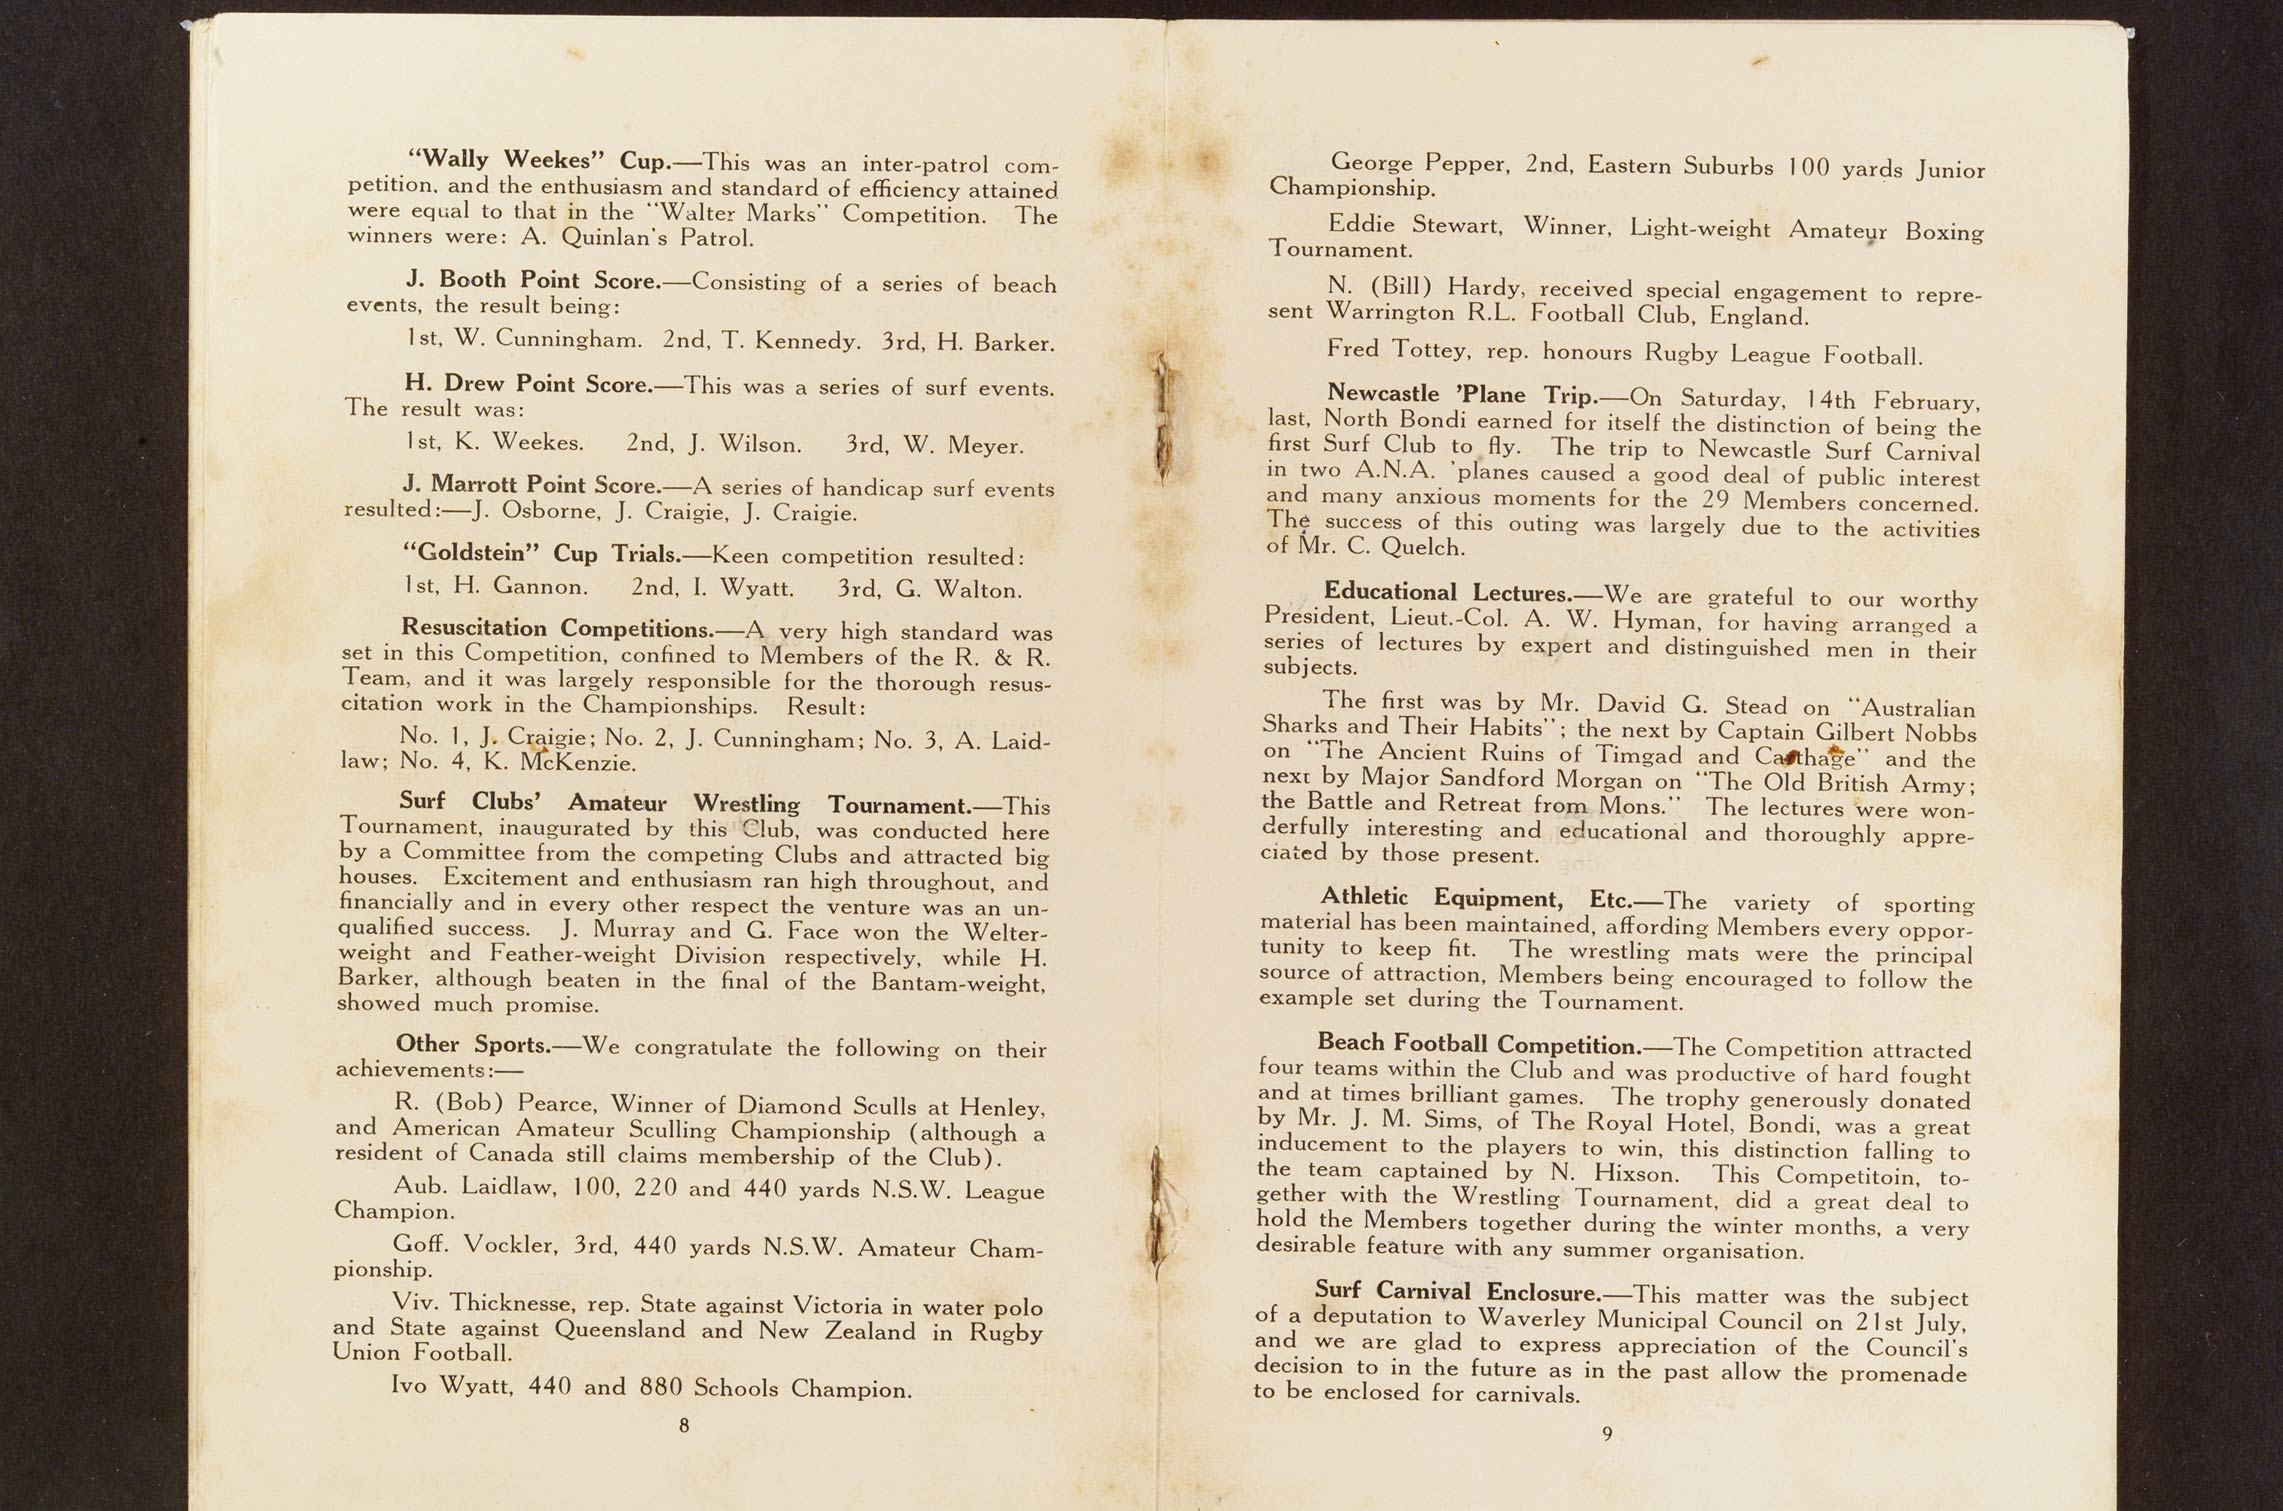 “Wally Weekes” Cup.—This was an inter-patrol com-
petition, and the enthusiasm and standard of efficiency attained
were equal to that in the “Walter Marks” Competition. The
winners were: A. Quinlan's Patrol.
J. Booth Point Score.—Consisting of a series of beach
events, the result being:
1st, W. Cunningham. 2nd, T. Kennedy. 3rd, H. Barker.
H. Drew Point Score.—This was a series of surf events.
The result was:
1st, K. Weekes. 2nd, J. Wilson. 3rd, W. Meyer.
J. Marrott Point Score.—A series of handicap surf events
resulted:—J. Osborne, J. Craigie, J. Craigie.
“Goldstein” Cup Trials.—Keen competition resulted:
1st, H. Gannon. 2nd, I. Wyatt. 3rd, G. Walton.
Resuscitation Competitions.—A very high standard was
set in this Competition, confined to Members of the R. & R.
Team, and it was largely responsible for the thorough resus-
citation work in the Championships. Result:
No. 1, J. Craigie; No. 2, J. Cunningham; No. 3, A. Laid-
law; No. 4, K. McKenzie.
Surf Clubs’ Amateur Wrestling Tournament.—This
Tournament, inaugurated by this Club, was conducted here
by a Committee from the competing Clubs and attracted big
houses. Excitement and enthusiasm ran high throughout, and
financially and in every other respect the venture was an un-
qualified success. J. Murray and G. Face won the Welter-
weight and Feather-weight Division respectively, while H.
Barker, although beaten in the final of the Bantam-weight,
showed much promise.
Other Sports.—We congratulate the following on their
achievements:—
R. (Bob) Pearce, Winner of Diamond Sculls at Henley,
and American Amateur Sculling Championship (although a
resident of Canada still claims membership of the Club).
Aub. Laidlaw, 100, 220 and 440 yards N.S.W. League
Champion.
Goff. Vockler, 3rd, 440 yards N.S.W. Amateur Cham-
pionship.
Viv. Thicknesse, rep. State against Victoria in water polo
and State against Queensland and New Zealand in Rugby
Union Football.
Ivo Wyatt, 440 and 880 Schools Champion.
8
George Pepper, 2nd, Eastern Suburbs 100 yards Junior
Championship.
Eddie Stewart, Winner, Light-weight Amateur Boxing
Tournament.
N. (Bill) Hardy, received special engagement to repre-
sent Warrington R.L. Football Club, England.
Fred Tottey, rep. honours Rugby League Football.
Newcastle ’Plane Trip.—On Saturday, 14th February,
last, North Bondi earned for itself the distinction of being the
first Surf Club to fly. The trip to Newcastle Surf Carnival
in two A.N.A. ’planes caused a good deal of public interest
and many anxious moments for the 29 Members concerned.
The success of this outing was largely due to the activities
of Mr. C. Quelch.
Educational Lectures.—We are grateful to our worthy
President, Lieut.-Col. A. W. Hyman, for having arranged a
series of lectures by expert and distinguished men in their
subjects.
The first was by Mr. David G. Stead on “Australian
Sharks and Their Habits”; the next by Captain Gilbert Nobbs
on “The Ancient Ruins of Timgad and Carthage” and the
next by Major Sandford Morgan on “The Old British Army;
the Battle and Retreat from Mons.” The lectures were won-
derfully interesting and educational and thoroughly appre-
ciated by those present.
Athletic Equipment, Etc.—The variety of sporting
material has been maintained, affording Members every oppor-
tunity to keep fit. The wrestling mats were the principal
source of attraction, Members being encouraged to follow the
example set during the Tournament.
Beach Football Competition.—The Competition attracted
four teams within the Club and was productive of hard fought
and at times brilliant games. The trophy generously donated
by Mr. J. M. Sims, of The Royal Hotel, Bondi, was a great
inducement to the players to win, this distinction falling to
the team captained by N. Hixson. This Competitoin, to-
gether with the Wrestling Tournament, did a great deal to
hold the Members together during the winter months, a very
desirable feature with any summer organisation.
Surf Carnival Enclosure.—This matter was the subject
of a deputation to Waverley Municipal Council on 21st July,
and we are glad to express appreciation of the Council's
decision to in the future as in the past allow the promenade
to be enclosed for carnivals.
9